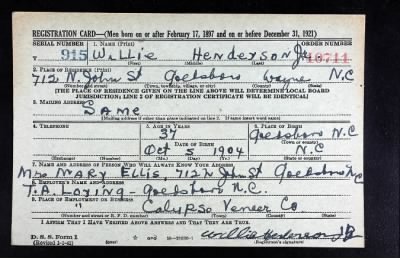 REGISTRATION CARD—(Men born on or after February 17, 1897 and on or before December 31, 1921)
SERIAL NUMBER 1. NAME (Print) ORDER NUMBER
915 Willie Henderson Jr. 10711
2. PLACE OF RESIDENCE (Print)
712 N. John St Goldsboro Wayne N.C
(Number and street) (Town, township, village, or city) (County) (State)
[THE PLACE OF RESIDENCE GIVEN ON THE LINE ABOVE WILL DETERMINE LOCAL BOARD
JURISDICTION; LINE 2 OF REGISTRATION CERTIFICATE WILL BE IDENTICAL]
3. MAILING ADDRESS
Same
[Mailing address if other than place indicated on line 2. If same insert word same]
4. TELEPHONE 5. AGE IN YEARS 6. PLACE OF BIRTH
37 Goldsboro N.C
DATE OF BIRTH (Town or county)
Oct 5 1904 N C
(Exchange) (Number) (Mo.) (Day) (Yr.) (State or country)
7. NAME AND ADDRESS OF PERSON WHO WILL ALWAYS KNOW YOUR ADDRESS
Mrs Mary Ellis, 712 N John St Goldsboro N.C
8. EMPLOYER'S NAME AND ADDRESS
T. A. Loving - Goldsboro N.C.
9. PLACE OF EMPLOYMENT OR BUSINESS
" Calypso Veneer Co
(Number and street or R. F. D. number) (Town) (County) (State)
I AFFIRM THAT I HAVE VERIFIED ABOVE ANSWERS AND THAT THEY ARE TRUE.
D. S. S. Form 1
(Revised 1-1-42) (over) Willie Henderson Jr
(Registrant's signature)